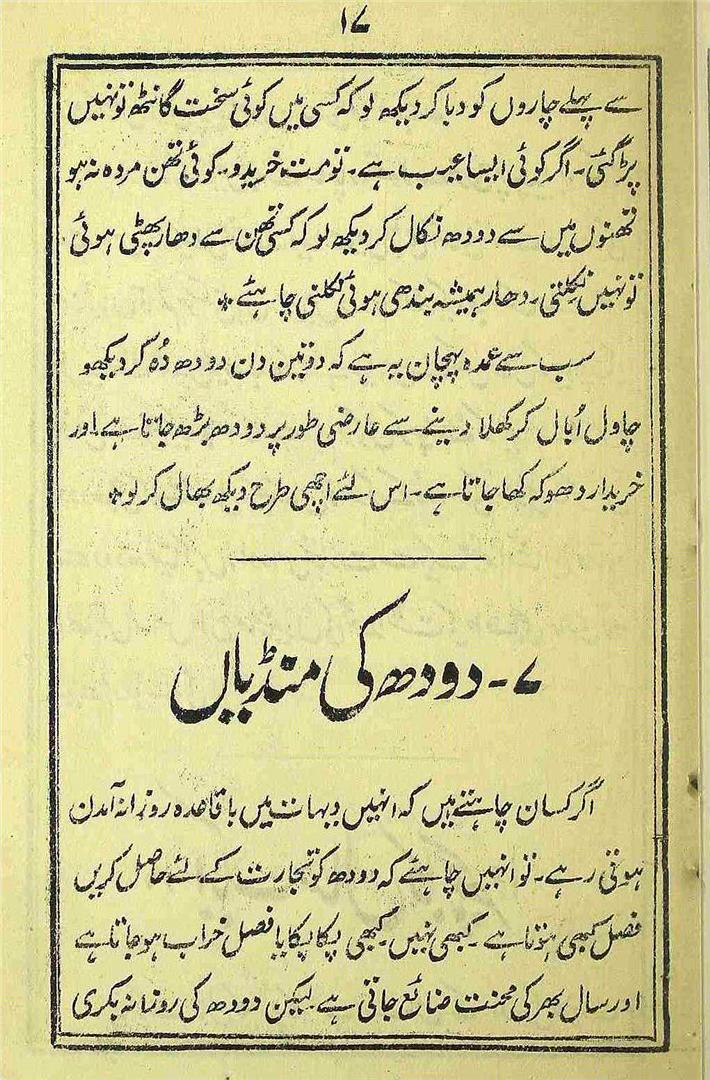 ۱۷
سے پہلے چاروں کو دبا کر دیکھ لو کہ کسی میں کوئی سخت گانٹھ تو نہیں
پڑ گئی۔ اگر کوئی ایسا عیب ہے۔ تو مت خریدو۔ کوئی تھن مردہ نہ ہو
تھنوں میں سے دودھ نکال کر دیکھ لو کہ کسی تھن سے دھار پھٹی ہوئی
تو نہیں نکلتی۔ دھار ہمیشہ بندھی ہوئی نکلنی چاہئے *
سب سے عمدہ پہچان یہ ہے کہ دو تین دن دودھ دُہ کر دیکھو
چاول اُبال کر کھلا دینے سے عارضی طور پر دودھ بڑھ جاتا ہے اور
خریدار دھوکہ کھا جاتا ہے۔ اس لئے اچھی طرح دیکھ بھال کر لو *
۷۔ دودھ کی منڈیاں
اگر کسان چاہتے ہیں کہ انہیں دیہات میں باقاعدہ روزانہ آمدن
ہوتی رہے۔ تو انہیں چاہئے کہ دودھ کو تجارت کے لئے حاصل کریں
فصل کبھی ہوتا ہے۔ کبھی نہیں۔ کبھی پکا پکایا فصل خراب ہو جاتا ہے
اور سال بھر کی محنت ضائع جاتی ہے۔ لیکن دودھ کی روزانہ بکری